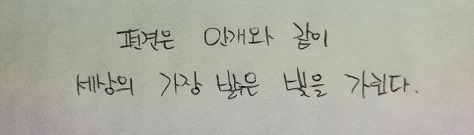 편견은 안개와 같이
세상의 가장 밝은 빛을 가린다.